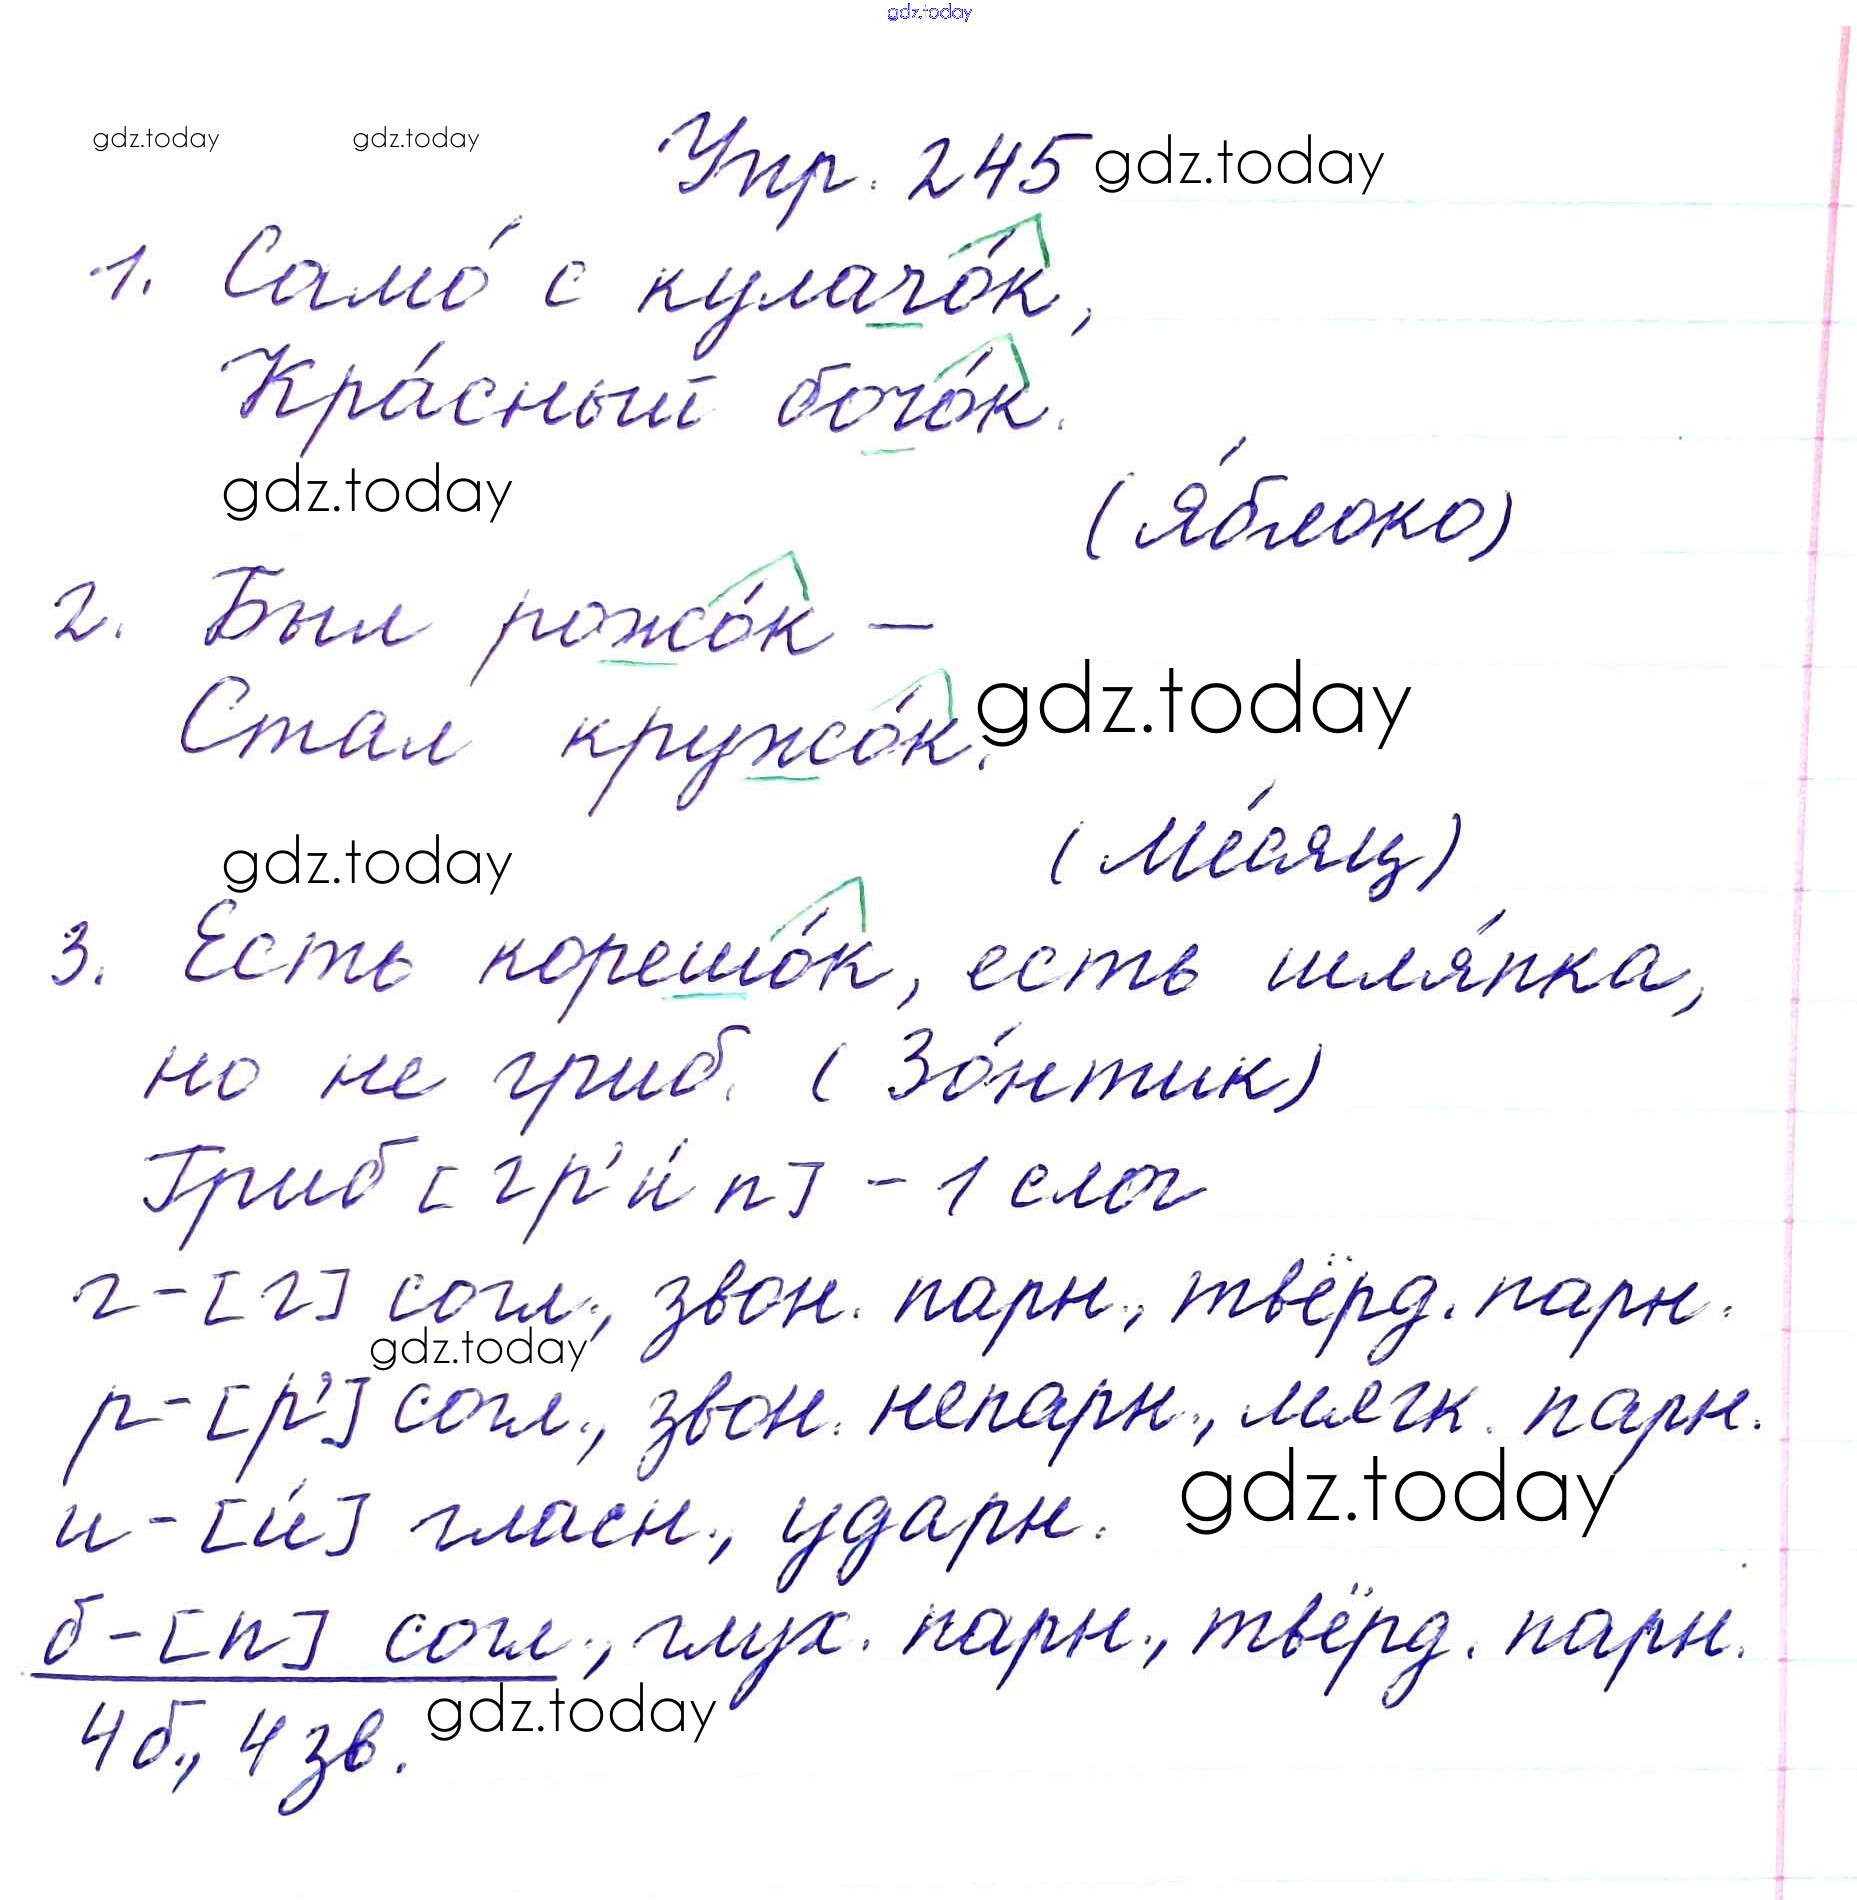 gdz.today
gdz.today gdz.today Упр. 245 gdz.today
1. Само́ с кулачо́к,
Кра́сный бочо́к.
gdz.today
(Я́блоко)
2. Был рожо́к –
Стал кружо́к. gdz.today
(Ме́сяц)
gdz.today
3. Есть корешо́к, есть шля́пка,
но не гриб. (Зо́нтик)
Гриб [гр'и́п] – 1 слог
г – [г] согл., звон. парн., твёрд. парн.
gdz.today
р – [р'] согл., звон. непарн., мягк. парн.
gdz.today
и – [и́] гласн., ударн.
б – [п] согл., глух. парн., твёрд. парн.
4 б., 4 зв. gdz.today